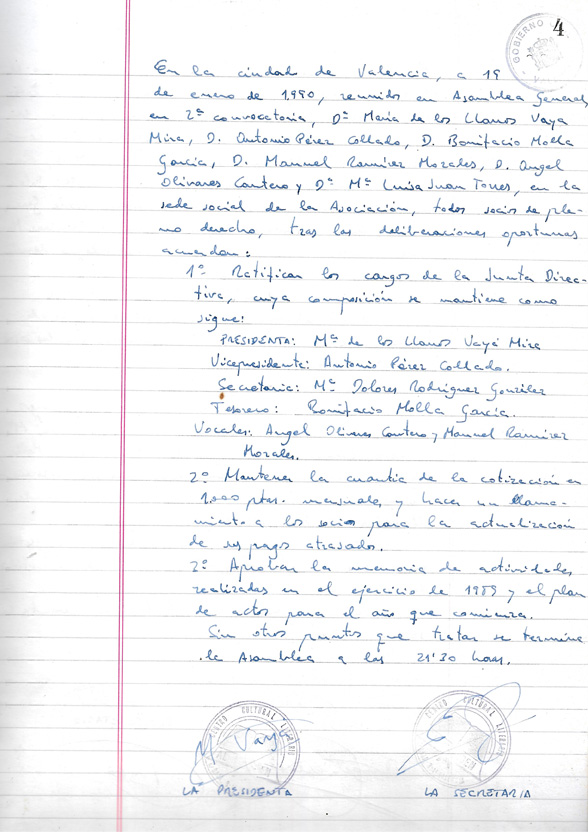 4
GOBIERNO
En la ciudad de Valencia, a 19
de enero de 1.990, reunidos en Asamblea General
en 2ª convocatoria, Dª María de los Llanos Vaya
Mira, D. Antonio Pérez Collado, D. Bonifacio Molla
García, D. Manuel Ramírez Morales, D. Angel
Olivares Cantero y Dª Mª Luisa Juan Torres, en la
sede social de la Asociación, todos socios de ple-
no derecho, tras las deliberaciones oportunas
acuerdan:
1º Ratificar los cargos de la Junta Direc-
tiva, cuya composición se mantiene como
sigue:
PRESIDENTA: Mª de los Llanos Vayá Mira
Vicepresidente: Antonio Pérez Collado.
Secretaria: Mª Dolores Rodríguez González
Tesorero: Bonifacio Molla García.
Vocales: Angel Olivares Cantero y Manuel Ramírez
Morales.
2º Mantener la cuantía de la cotización en
1.000 ptas. mensuales y hacer un llama-
miento a los socios para la actualización
de sus pagos atrasados.
2º Aprobar la memoria de actividades
realizadas en el ejercicio de 1989 y el plan
de actos para el año que comienza.
Sin otros puntos que tratar se termina
la Asamblea a las 21'30 horas.
CENTRO CULTURAL LITERARIO
M Vaya
CENTRO CULTURAL LITERARIO
LA PRESIDENTA
LA SECRETARIA